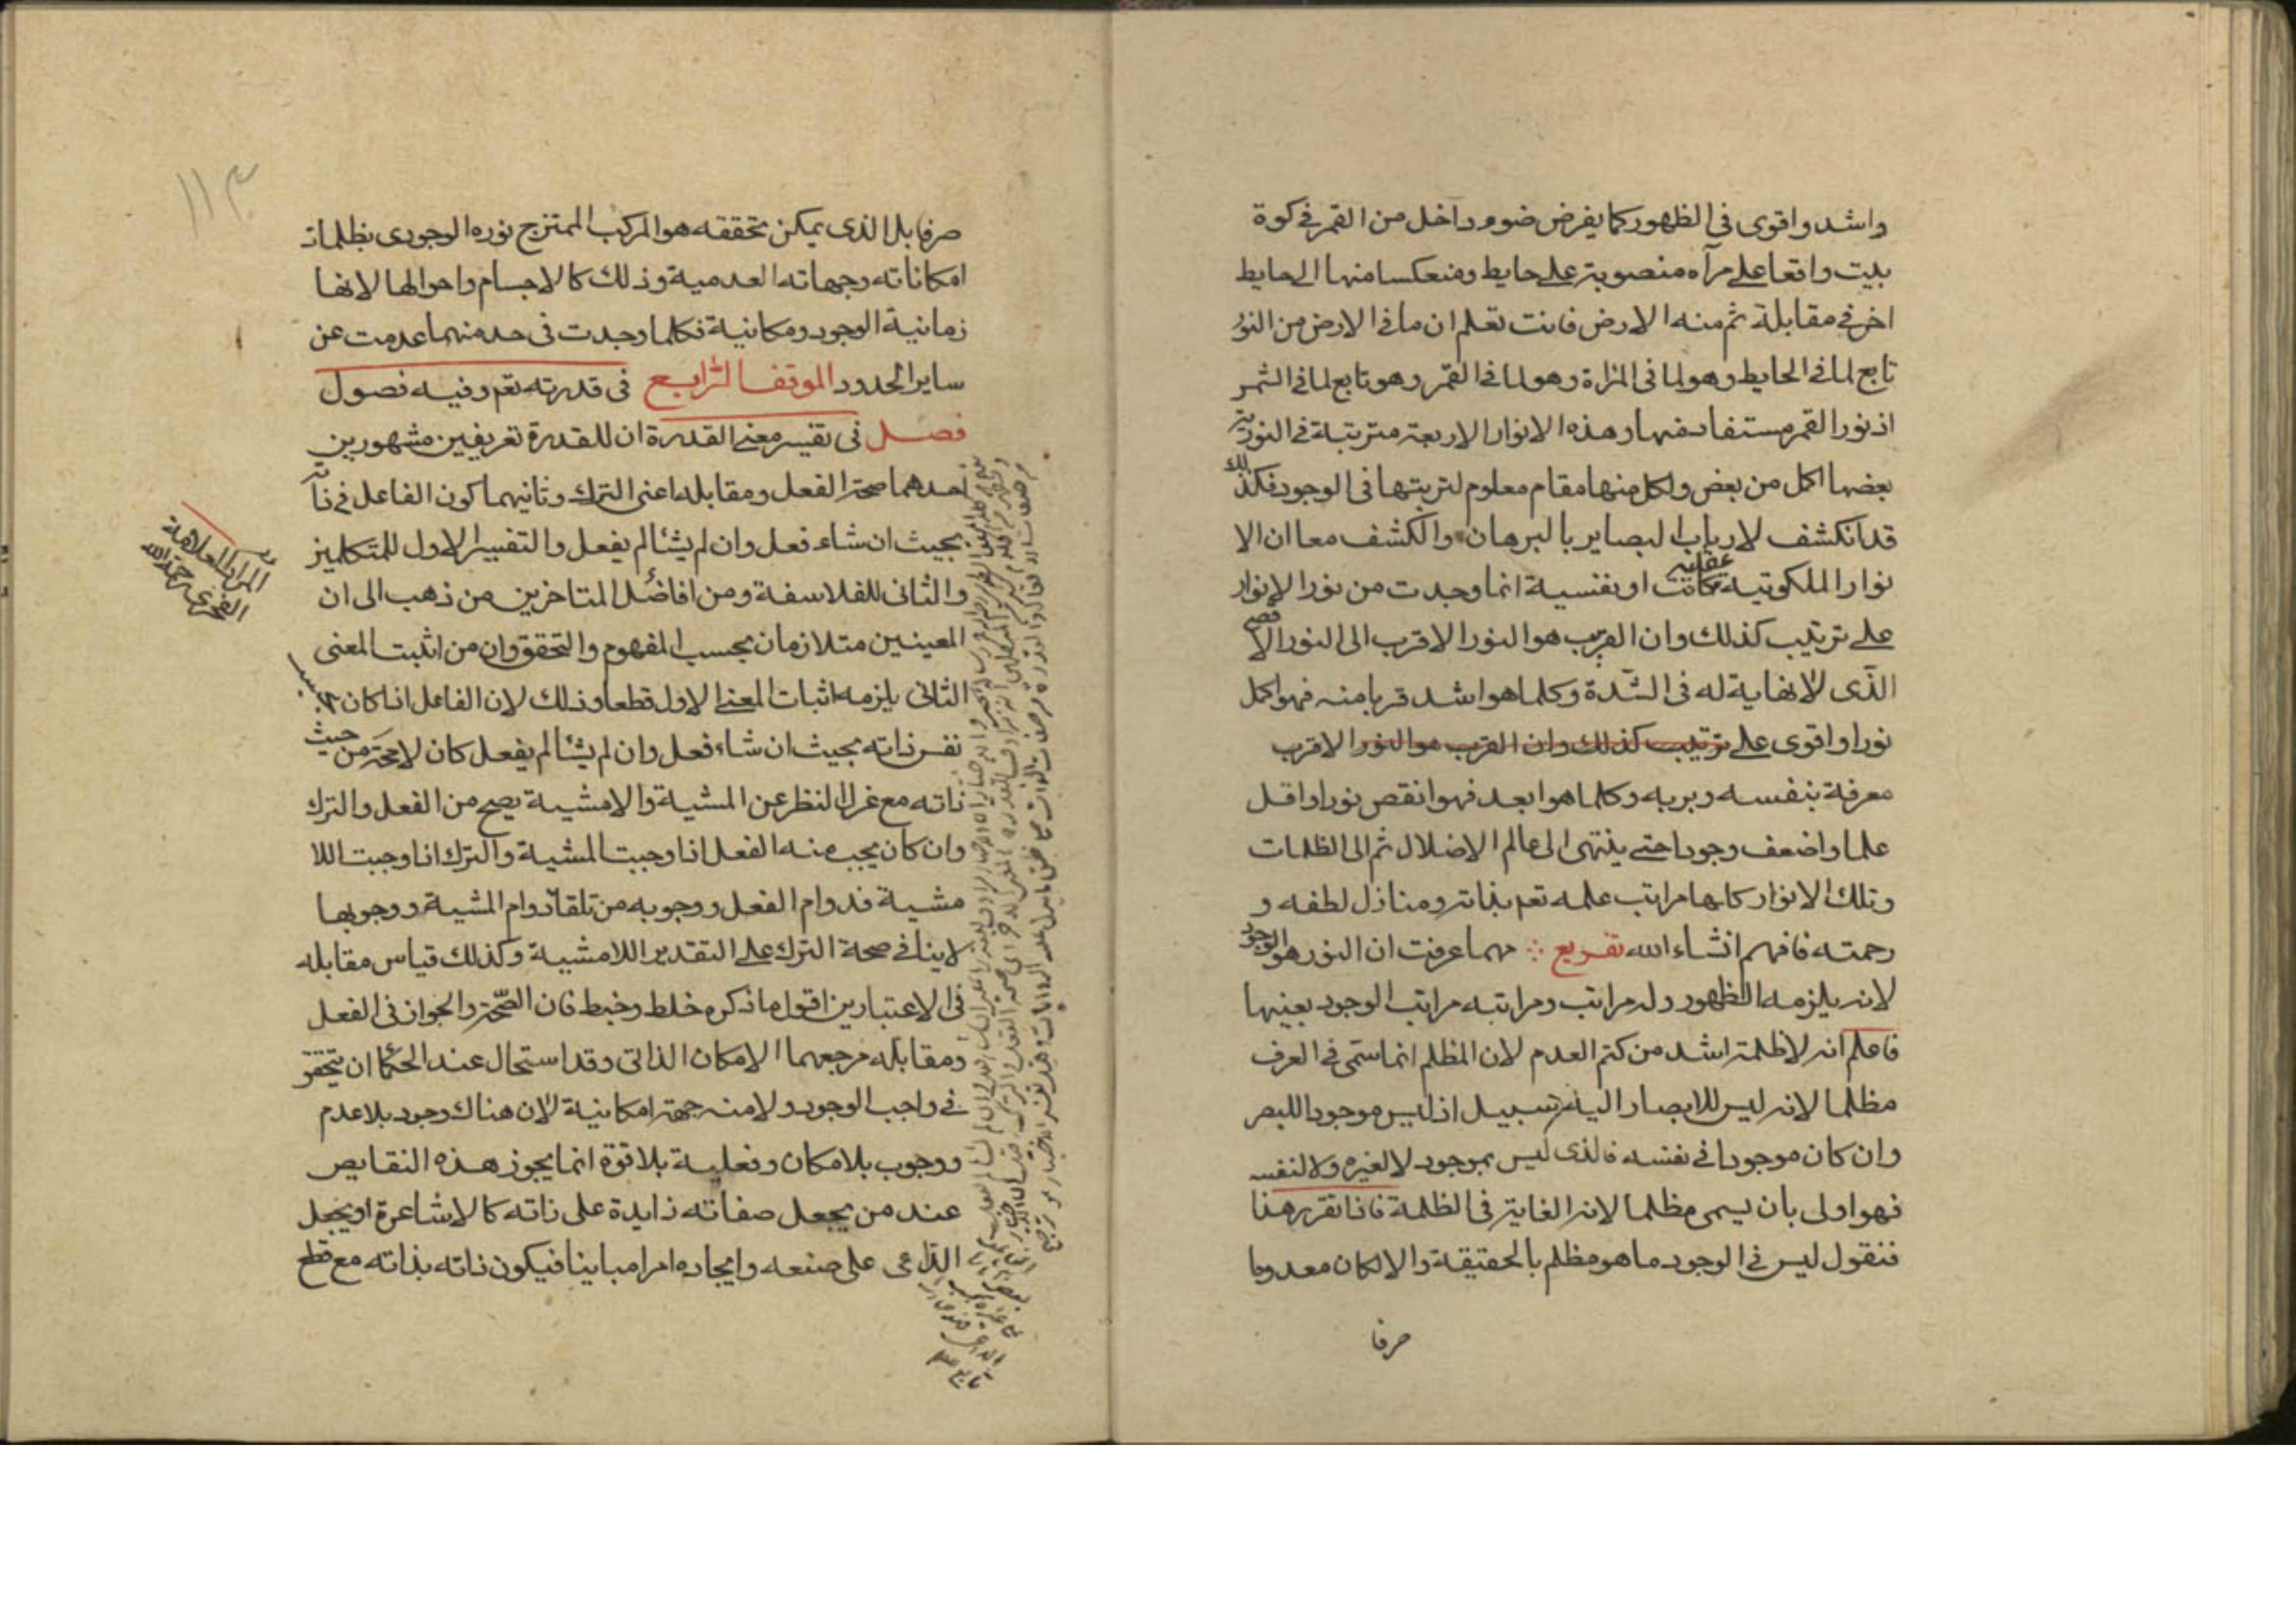 واشد واقوى فى الظهور كما يفرض ضوء داخل من القمر فى كوة
بيت واقعا على مرآه منصوبة على حايط ومنعكسا منها الى حايط
اخر فى مقابلة ثم منه الارض فانت تعلم ان ما فى الارض من النور
تابع لما فى الحايط وهو لما فى المراة وهو لما فى القمر وهو تابع لما فى الشمس
اذ نور القمر مستفاد منها وهذه الانوار الاربعة مترتبة فى النورية
بعضها اكمل من بعض ولكل منها مقام معلوم لترتبها فى الوجود فكذلك
قد انكشف لارباب البصاير بالبرهان والكشف معا ان الا
نوار الملكوتية عقلية كانت او نفسية انما وجدت من نور الانوار
على ترتيب كذلك وان القرب هو النور الاقرب الى النور الاقصى
الذى لا نهاية له فى الشدة وكلما هو اشد قربا منه فهو اكمل
نورا واقوى على ترتيب كذلك وان القرب هو النور الاقرب
معرفة بنفسه وبربه وكلما هو ابعد فهو انقص نورا واقل
علما واضعف وجودا حتى ينتهى الى عالم الاضلال ثم الى الظلمات
وتلك الانوار كلها مراتب علمه تعم بذاته ومنازل لطفه و
رحمته فافهم انشاء الله تفريع مهما عرفت ان النور هو الوجود
لانه يلزمه الظهور وله مراتب ومراتبه مراتب الوجود بعينها
فاعلم انه لا ظلمة اشد من كتم العدم لان المظلم انما سمى فى العرف
مظلما لانه ليس للابصار اليه سبيل اذ ليس موجودا للبصر
وان كان موجودا فى نفسه فالذى ليس بموجود لا لغيره ولا لنفسه
فهو اولى بان يسمى مظلما لانه الغاية فى الظلمة فاذا تقرر هذا
فنقول ليس فى الوجود ما هو مظلم بالحقيقة والا لكان معدوما
صرفا
١١٣
صرفا بل الذى يمكن تحققه هو المركب الممتزج نوره الوجودى بظلمات
امكاناته وجهاته العدمية وذلك كالاجسام واحوالها لانها
زمانية الوجود ومكانية فكلما وجدت فى حد منهما عدمت عن
ساير الحدود الموقف الرابع فى قدرته تعم وفيه فصول
فصل فى تفسير معنى القدرة ان للقدرة تعريفين مشهورين
احدهما صحة الفعل ومقابله اعنى الترك وثانيهما كون الفاعل فى ذاته
بحيث ان شاء فعل وان لم يشأ لم يفعل والتفسير الاول للمتكلمين
والثانى للفلاسفة ومن افاضل المتاخرين من ذهب الى ان
المعينين متلازمان بحسب المفهوم والتحقق وان من اثبت المعنى
الثانى يلزمه اثبات المعنى الاول قطعا وذلك لان الفاعل اذا كان بحسب
نفس ذاته بحيث ان شاء فعل وان لم يشأ لم يفعل كان لا محة من حيث
ذاته مع عزل النظر عن المشية والامشية يصح من الفعل والترك
وان كان يجب منه الفعل اذا وجبت المشية والترك اذا وجبت اللا
مشية فدوام الفعل ووجوبه من تلقاء دوام المشية ووجوبها
لا ينافى صحة الترك على التقدير اللامشية وكذلك قياس مقابله
فى الاعتبارين اقول ما ذكره خلط وخبط فان الصحة والجواز فى الفعل
ومقابله مرجعهما الامكان الذاتى وقد استحال عند الحكما ان يتحقق
فى واجب الوجود ولا منه جهة امكانية لان هناك وجود بلا عدم
ووجوب بلا مكان وفعلية بلا قوة انما يجوز هذه النقايص
عند من يجعل صفاته زايدة على ذاته كالاشاعرة او يجعل
الداعى على صنعه وايجاده امرا مباينا فيكون ذاته بذاته مع قطع
المراد العلامة
الخفرى رحمه الله